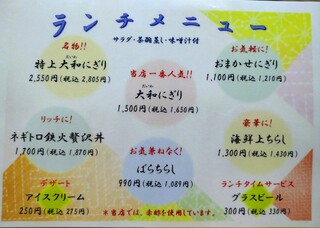 ランチメニュー
サラダ・茶碗蒸し・味噌汁付
名物!!
特上大和にぎり
2,550円(税込 2,805円)
当店一番人気!!
大和にぎり
1,500円(税込 1,650円)
お気軽に!
おまかせにぎり
1,100円(税込 1,210円)
リッチに!
ネギトロ鉄火贅沢丼
1,700円(税込 1,870円)
お気兼ねなく!
ばらちらし
990円(税込 1,089円)
豪華に!
海鮮上ちらし
1,300円(税込 1,430円)
デザート
アイスクリーム
250円(税込 275円)
ランチタイムサービス
グラスビール
300円(税込 330円)
※当店では、赤酢を使用しています。